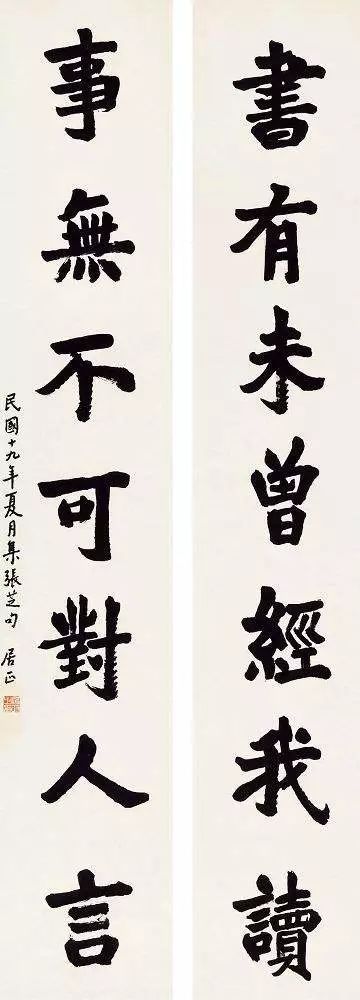 書有未曾經我讀
事無不可對人言
民國十九年夏月集張芝句 居正